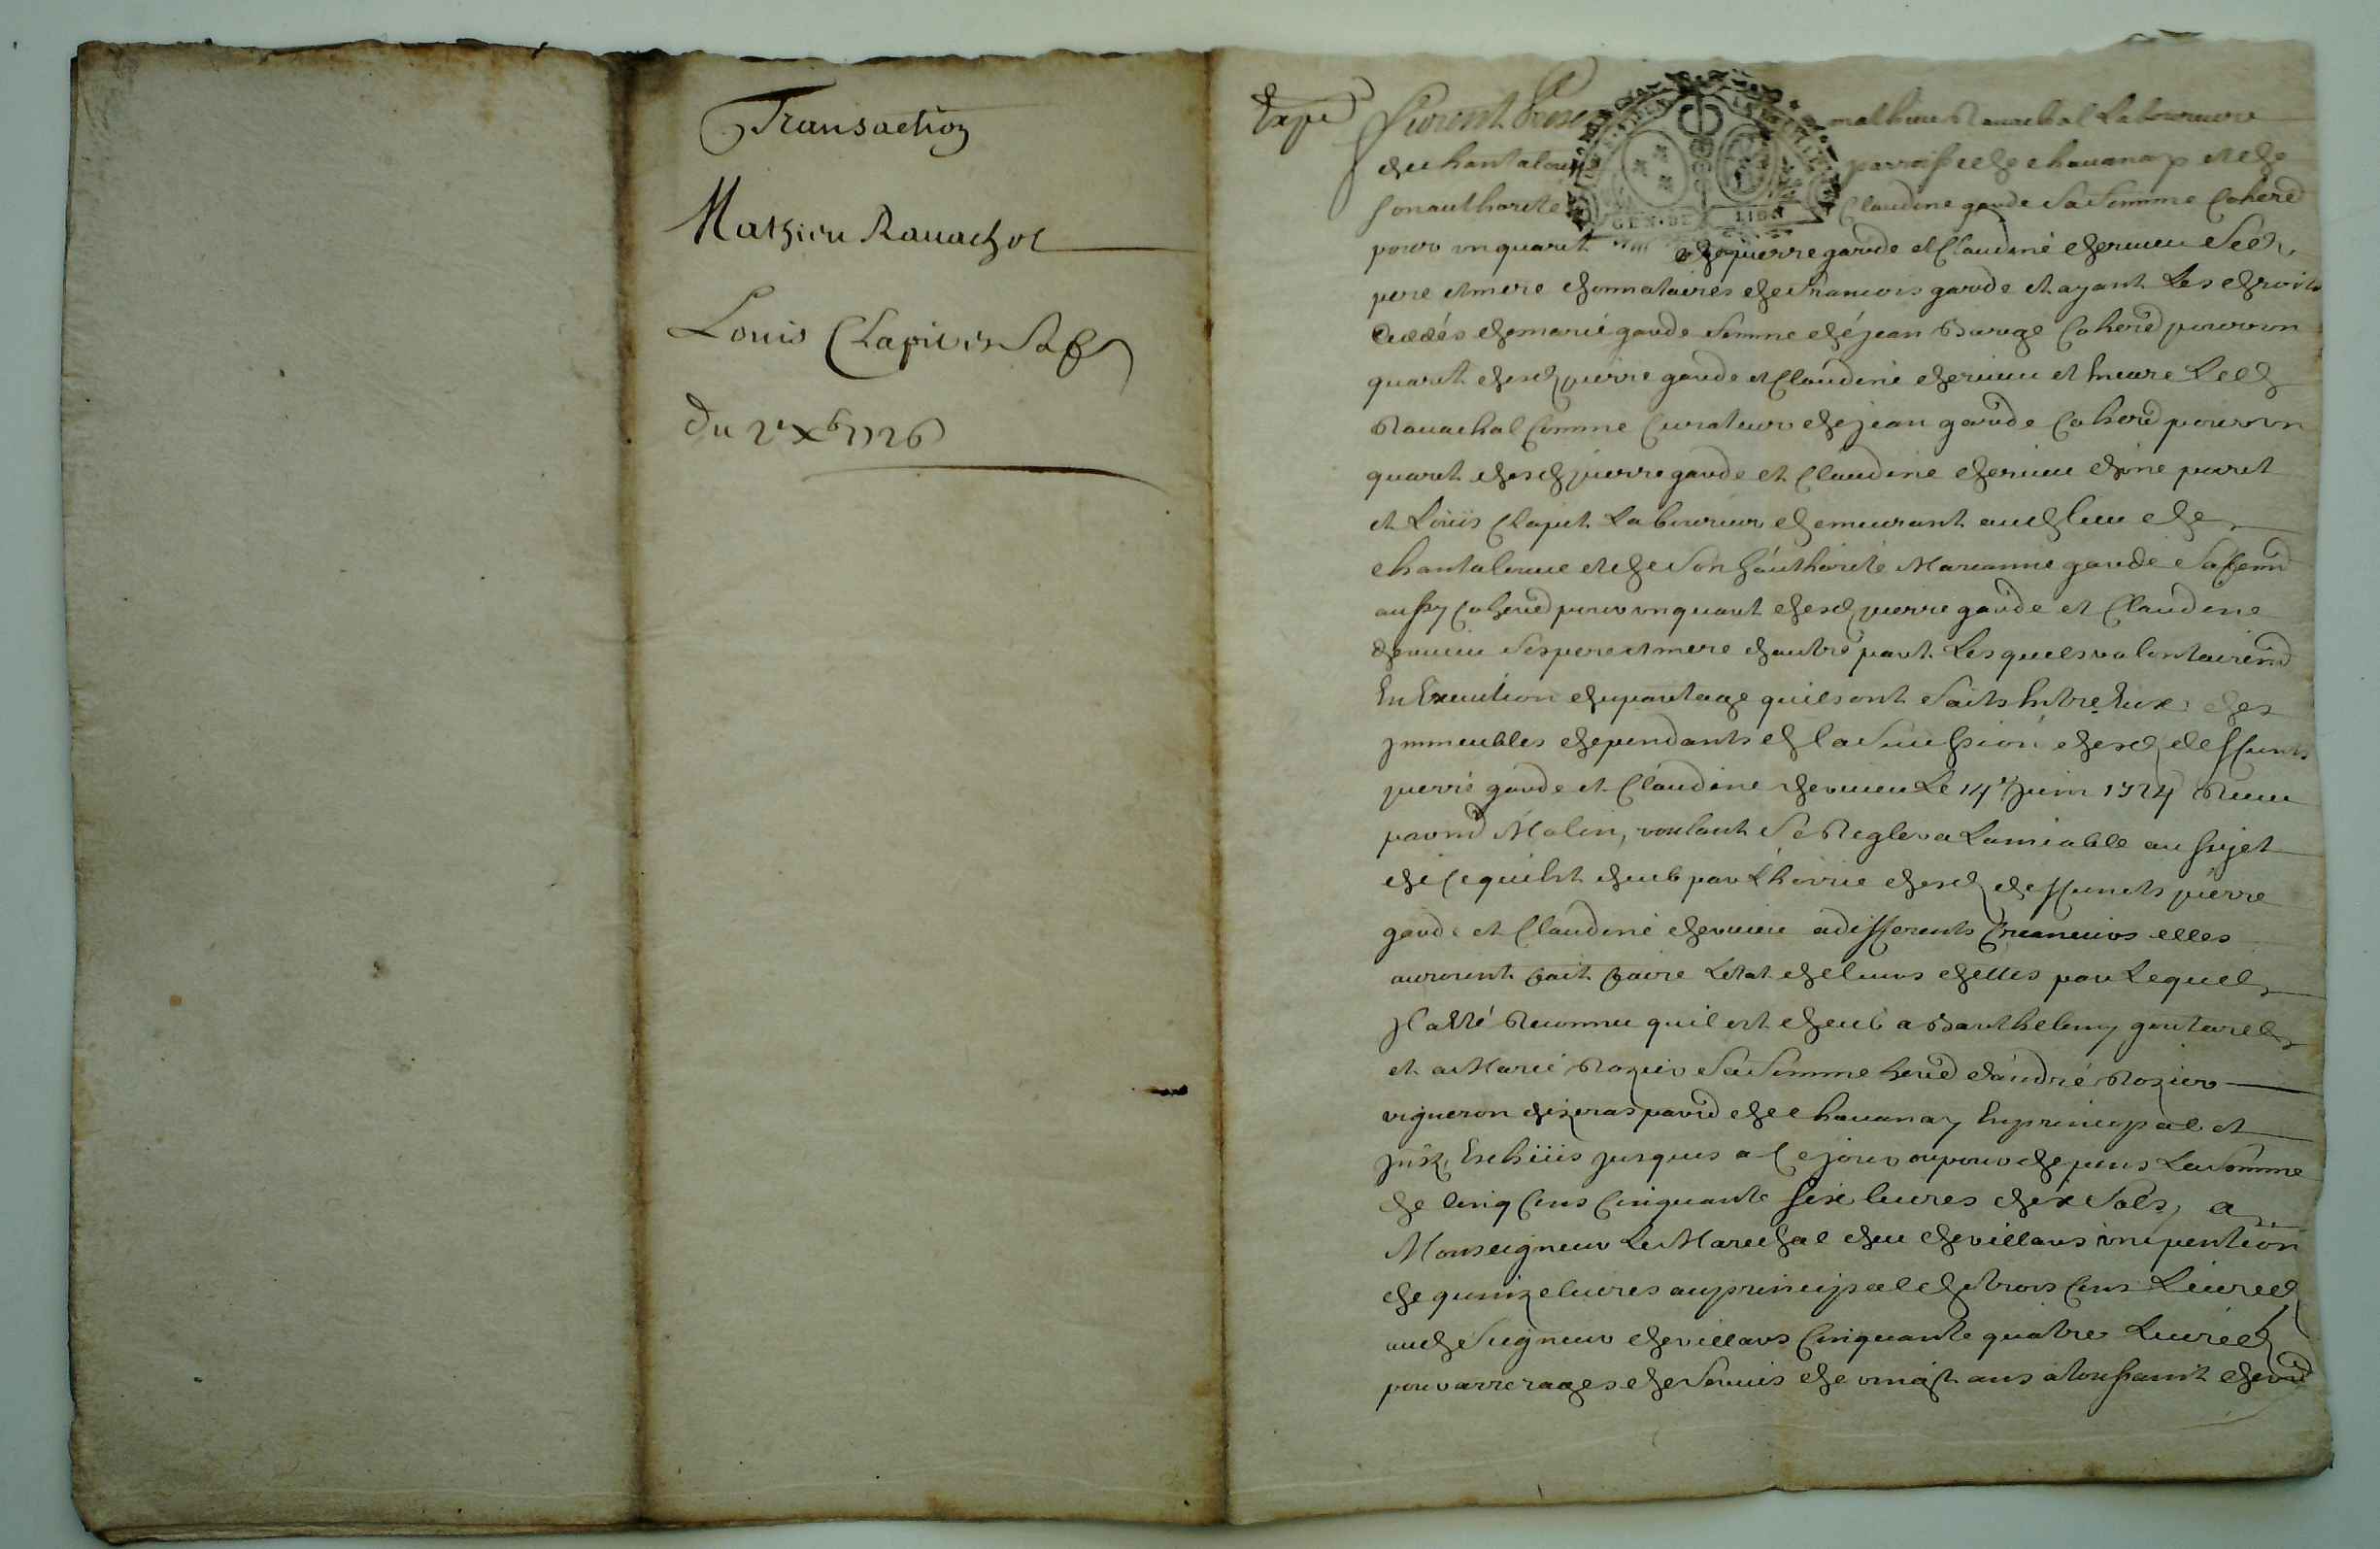 Transaction
Mathieu Rauachol
Louis Chapui & Sa f
Du 2e Xb 1726
Expé
Furent Presen mathieu Rauachal Laboureur
du chantalou parroisse de chauanay et de
son authorité Claudine garde Sa Femme Coherd
pour un quart de pierre garde et Claudine deruieu Ses
pere et mere donnataires de Francois garde et ayant Les droits
Ceddés de marie garde femme de jean Barge Coherd pour un
quart desd pierre garde et Claudine deruieu et Encore Led
Rauachal Comme Curateur de jean garde Coherd pour un
quart desd pierre garde et Claudine deruieu d'une part
et Louis Chaput Laboureur demeurant aud lieu de
chantaloue et de Son authorité Marianne garde Sa femme
aussy Coherd pour un quart desd pierre garde et Claudine
deruieu Ses pere et mere d'autre part Lesquels volontairemt
En Execution du partage quils ont faits Entre Eux des
jmmeubles dependants de la Succession desd deffunts
pierre garde et Claudine deruieu Le 14e Juin 1724 Receu
par md Molin, voulant Se Regler a Lamiable au sujet
de Ce quil Est deub par L'hoirie desd deffuncts pierre
garde et Claudine deruieu a differents Creanciers elles
auroient fait faire L'etat de leurs dettes par Lequel
jl a Esté Reconnu quil est deub a Barthelemy goutarel
et a Marie Rozier Sa femme herd d'andré Rozier
vigneron parr de chauanay En principal et
Escheus jusques a Ce jour ou pour depens La Somme
de Cinq Cens Cinquante six liures dix Sols, a
Monseigneur Le Marechal duc de villars une pention
de quinze liures au principal de trois Cens Liures
aud Seigneur de villars Cinquante quatre Liures
pour arrerages de Seruis de vingt ans a toussaint